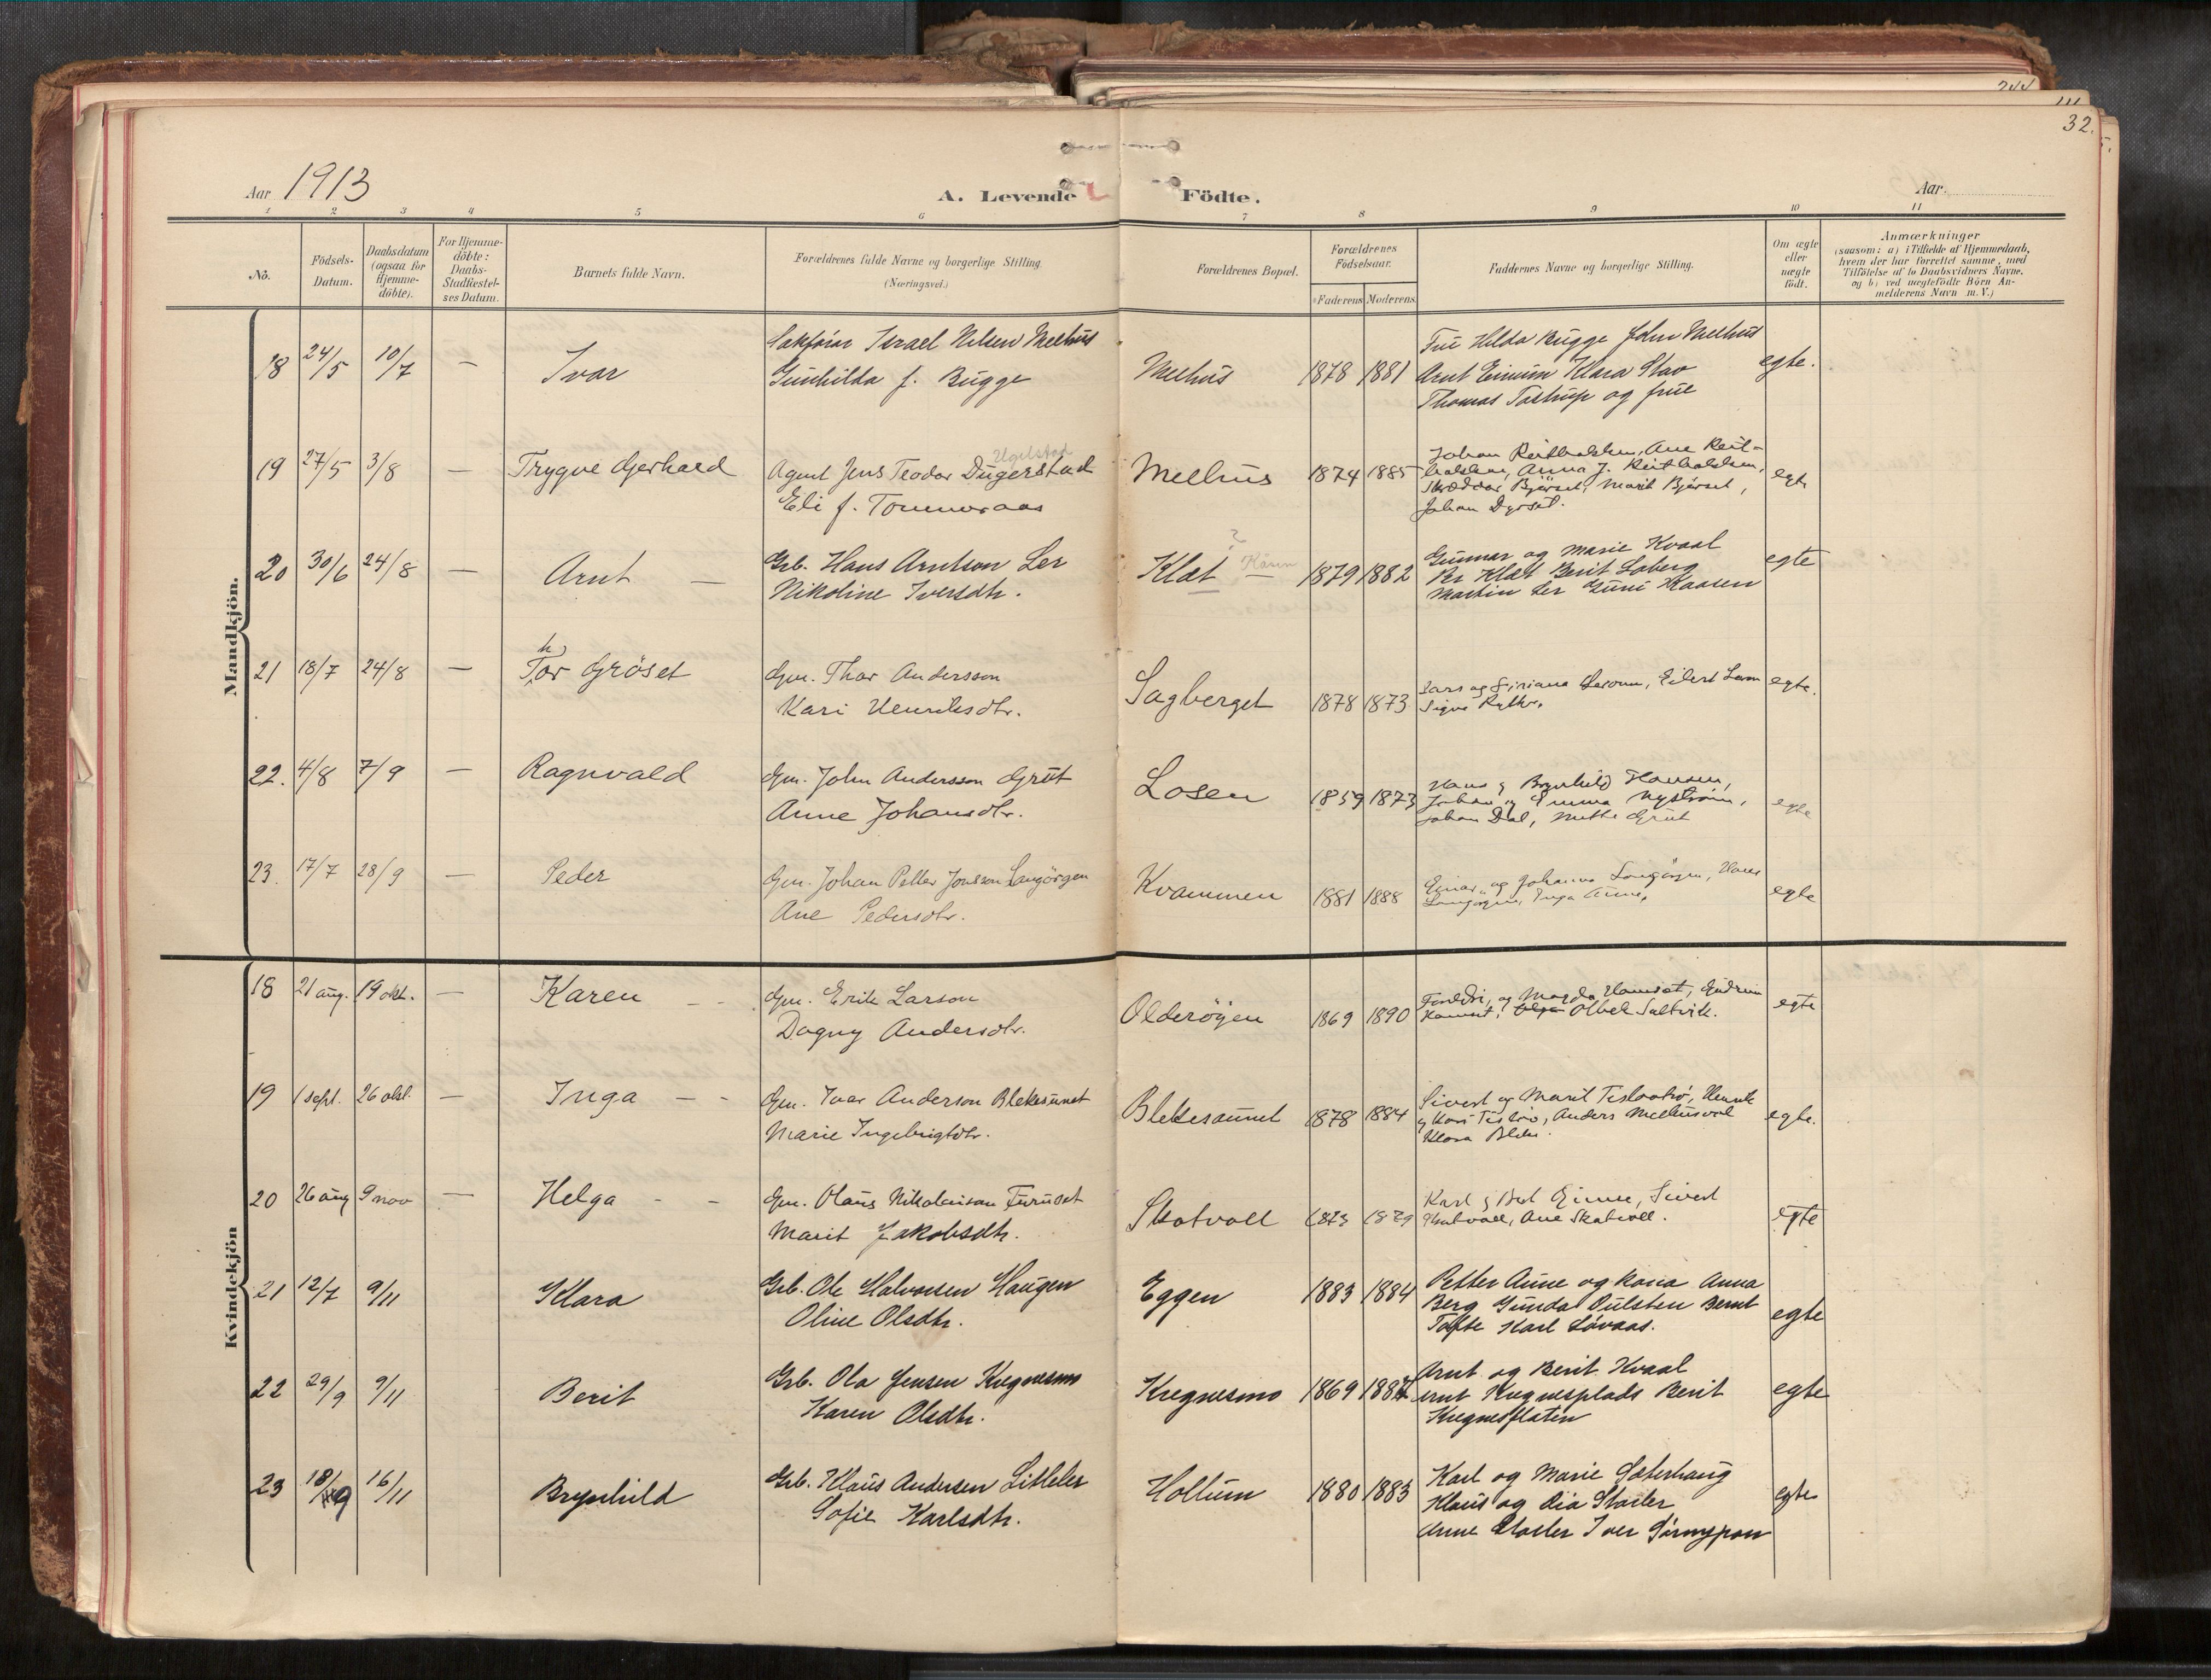 32.
Aar 1913
A. Levende Födte.
Aar
1 2 3 4 5 6 7 8 9 10 11
No.
Födsels-
Datum.
Daabsdatum
(ogsaa for
Hjemme-
döbte).
For Hjemme-
döbte:
Daabs-
Stadfæstel-
ses Datum.
Barnets fulde Navn.
Forældrenes fulde Navne og borgerlige Stilling.
(Næringsvei.)
Forældrenes Bopæl.
Forældrenes
Födselsaar.
Faderens Moderens
Faddernes Navne og borgerlige Stilling.
Om ægte
eller
uægte
födt.
Anmærkninger
(saasom: a) i Tilfælde af Hjemmedaab,
hvem der har forrettet samme, med
Tilföielse af to Daabsvidners Navne,
og b) ved uægtefödte Börn An-
melderens Navn m. V.)
Mandkjön.
18 24/5 10/7 — Ivar
Sakförer Israel Nilsen Melhus
Gunhilda f. Bugge
Melhus 1878 1881
Frue Hilda Bugge John Melhus
Arnt Eimum Klara Stav
Thomas Tostrup og frue
egte.
19 27/5 3/8 — Trygve Gerhard
Ugelstad
Agent Jens Teodor Dugerstad
Eli f. Tommeraas
Melhus 1874 1885
Johan
Anna J.
Bjørset, Marit Bjørset,
Johan
egte
20 30/6 24/8 — Arnt —
Grb. Hans Arntson Ler
Nikoline Iversdtr.
?
Klæt — 1879 1882
Gunnar og Marie Kvaal
Per Klæt Berit Loberg
Martin Ler Guni Kaasen
egte
21 18/7 24/8 — Tor Gröset
h
Gm. Thor Andersson
Kari Henriksdtr.
Sagberget 1878 1873
Lars og Eilert
Signe
egte.
22. 4/8 7/9 — Ragnvald
Gm. John Andersson Grut
Anne Johansdtr.
Losen 1859 1873
Hans og Brynhild Hansen,
Johan og Emma Nyström,
Johan Dal, Mette Grut
egte
23. 17/7 28/9 — Peder
Gm. Johan Petter Jonsson Langörgen
Ane Pedersdtr.
Kvammen 1881 1888
Einar og Johanna Langörgen, Hans
Langörgen, Inga
egte
Kvindekjön
18 21 aug. 19 okt. — Karen - -
Gm. Erik Larson
Dagny Andersdtr.
Olderöyen 1869 1890
og Magda
Saltvik.
egte
19 1 sept. 26 okt. — Inga — -
Gm. Ivar Anderson Blekesaunet
Marie Ingebrigtdtr.
Blekesaunet 1878 1884
Sivert og Marit Henrik
og Kari Anders Melhusvol
Klara
egte.
20 26 aug 9 nov — Helga - -
Gm. Olaus Nikolaison Furuset
Marit Jakobsdtr.
Skatvoll 1873 1879
Karl Sivert
Skatvoll, Ane Skatvoll.
egte
21 12/7 9/11 Klara
Grb. Ole Halvorsen Haugen
Oline Olsdtr.
Eggen 1883 1884
Petter Aune og kona Anna
Berg Gunda Bernt
Tofte Karl Løvaas.
egte
22 29/9 9/11 Berit
Grb. Ola Jensen Kregnesmo
Karen Olsdtr.
Kregnesmo 1869 1884
Arnt og Berit Kvaal
Arnt Kregnesplads Berit
Kregnesflaten
egte
23 18/9 16/11 Brynhild
Grb. Klaus Andersen Litleler
Sofie Karlsdtr.
Hollum 1880 1883
Karl og Marie Sæterhaug
Klaus og Storler
Anne Storler Iver
egte